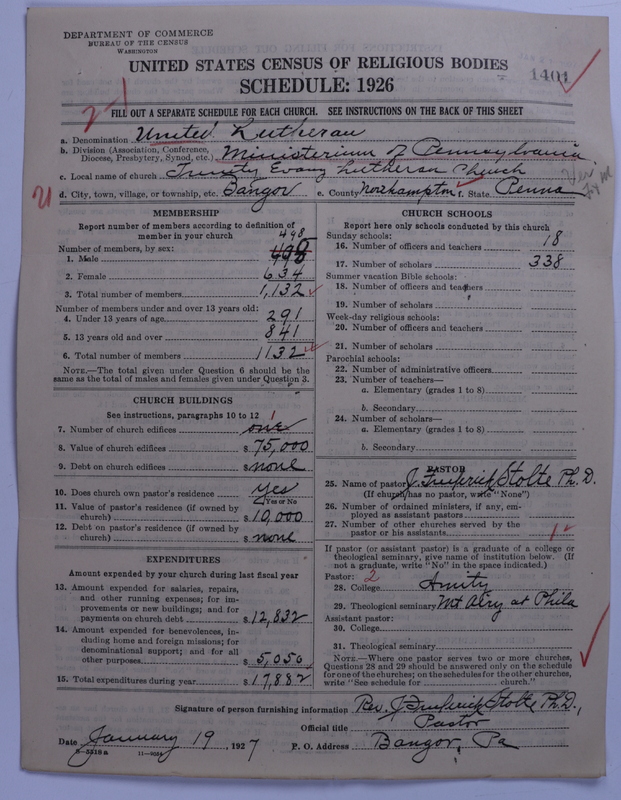 DEPARTMENT OF COMMERCE
BUREAU OF THE CENSUS
WASHINGTON
UNITED STATES CENSUS OF RELIGIOUS BODIES
SCHEDULE: 1926
1401
2-1
FILL OUT A SEPARATE SCHEDULE FOR EACH CHURCH. SEE INSTRUCTIONS ON THE BACK OF THIS SHEET
a. Denomination United Lutheran
b. Division (Association, Conference, Diocese, Presbytery, Synod, etc.) Ministerium of Pennsylvania
c. Local name of church Trinity Evang Lutheran Church
d. City, town, village, or township, etc. Bangor e. County Northampton f. State Penna
MEMBERSHIP
Report number of members according to definition of member in your church
Number of members, by sex:
498
1. Male
2. Female 634
3. Total number of members 1,132
Number of members under and over 13 years old:
4. Under 13 years of age 291
5. 13 years old and over 841
6. Total number of members 1132
NOTE.—The total given under Question 6 should be same as the total of males and females given under Question 3.
CHURCH BUILDINGS
See instructions, paragraphs 10 to 12
1
7. Number of church edifices one
8. Value of church edifices $ 75,000
9. Debt on church edifices $ none
10. Does church own pastor's residence Yes
Yes or No
11. Value of pastor's residence (if owned by church) $ 10,000
12. Debt on pastor's residence (if owned by church) $ none
EXPENDITURES
Amount expended by your church during last fiscal year
13. Amount expended for salaries, repairs, and other running expenses; for improvements or new buildings; and for payments on church debt $ 12,832
14. Amount expended for benevolences, including home and foreign missions; for denominational support; and for all other purposes $ 5,050
15. Total expenditures during year $ 17,882
CHURCH SCHOOLS
Report here only schools conducted by this church
Sunday schools:
16. Number of officers and teachers 18
17. Number of scholars 338
Summer vacation Bible schools:
18. Number of officers and teachers
19. Number of scholars
Week-day religious schools:
20. Number of officers and teachers
21. Number of scholars
Parochial schools:
22. Number of administrative officers
23. Number of teachers—
a. Elementary (grades 1 to 8)
b. Secondary
24. Number of scholars—
a. Elementary (grades 1 to 8)
b. Secondary
PASTOR
25. Name of pastor J. Frederick Stolte Ph.D.
(If church has no pastor, write "None")
26. Number of ordained ministers, if any, employed as assistant pastors
27. Number of other churches served by the pastor or his assistants
If pastor (or assistant pastor) is a graduate of a college or theological seminary, give name of institution below. (If not a graduate, write "No" in the space indicated.)
Pastor: 2
28. College Amity
29. Theological seminary Mt Airy at Phila
Assistant pastor:
30. College
31. Theological seminary
NOTE.—Where one pastor serves two or more churches, Questions 28 and 29 should be answered only on the schedule for one of the churches; on the schedules for the other churches, write "See schedule for church."
Signature of person furnishing information Rev. J. Frederick Stolte, Ph.D.,
Official title Pastor
Date January 19, 1927 P. O. Address Bangor, Pa